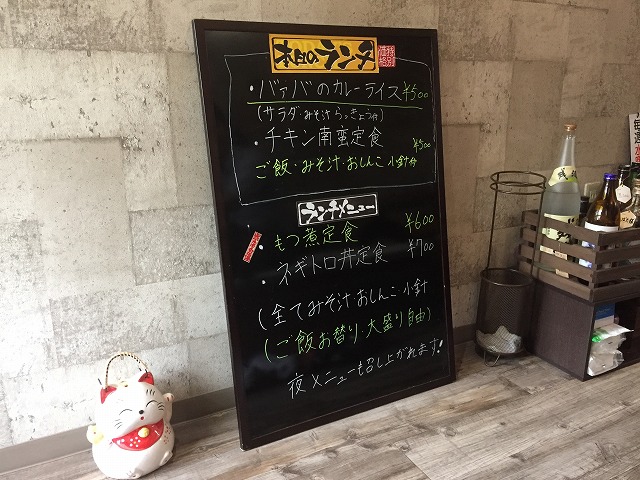 本日のランチ
特別価格
・バァバのカレーライス ¥500
(サラダ・みそ汁 らっきょう付)
・チキン南蛮定食 ¥500
ご飯・みそ汁・おしんこ 小鉢付
ランチメニュー
・もつ煮定食 ¥600
・ネギトロ丼定食 ¥700
(全てみそ汁・おしんこ・小鉢
(ご飯お替り・大盛り自由)
夜メニューも召し上がれます!